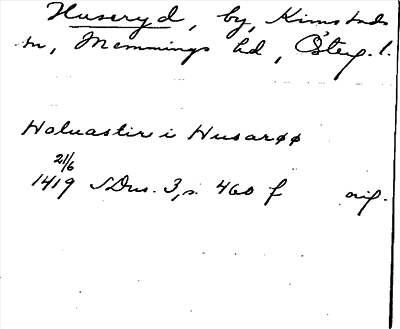 Huseryd, by, Kimstads
sn, Memmings hd,Österg. l.
Holuastir i Husarøø
21/6
1419 SDns. 3, s. 460 f orig.